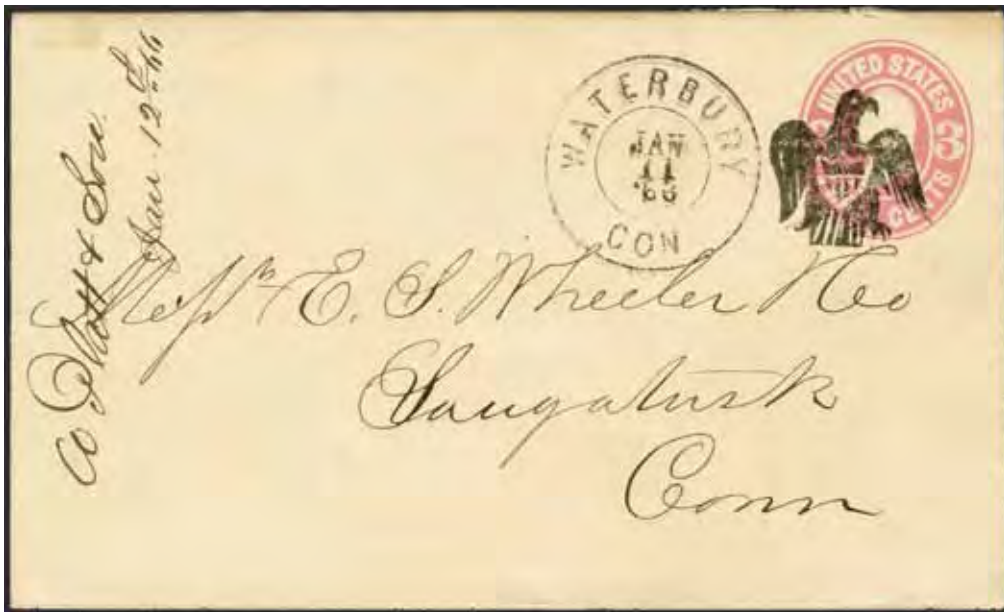 A Platt & Son.
Jan. 12th 66
WATERBURY
JAN
11
'66
CON
UNITED STATES
3
CENTS
Messrs E. S. Wheeler & Co
Saugatusk
Conn